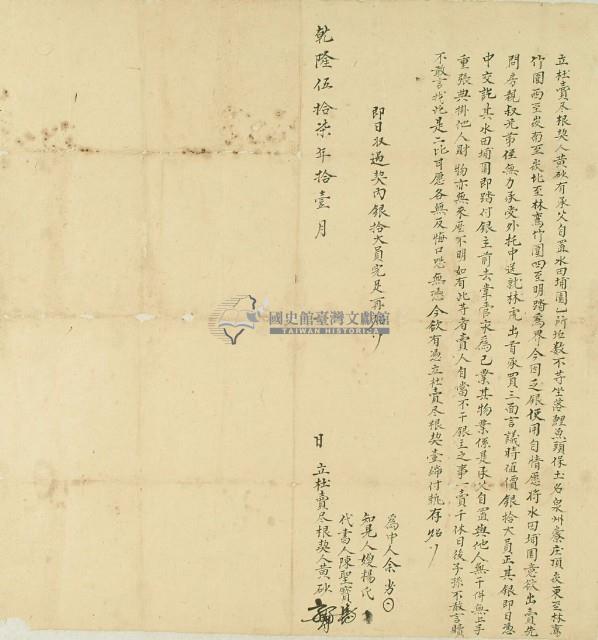 立杜賣尽根契人黃砍有承父自置水田埔園乙所坵数不等坐落鯉魚頭保土名泉州寮庄頂東至林鳶
竹圍西至崁南至崁北至林鳶竹圍四至明踏為界今因乏銀使用自情愿將水田埔園意欲出賣先
問房親叔兄弟侄無力承受外托中送就林虎出首承買三面言議時值價銀拾大員正其銀即日憑
中交訖其水田埔園即踏付銀主前去掌管永為己業其物業係是承父自置與他人無干併無上手
重張典掛他人財物亦無來歷不明如有此等者賣人自當不干銀主之事一賣千休日後子孫不敢言贖
不敢言找此是二比甘愿各無反悔口恐無憑今欲有憑立杜賣尽根契壹紙付執存炤
即日收過契內銀拾大員完足再炤
乾隆伍拾柒年拾壹月 日 立杜賣尽根契人黃砍
為中人余
知見人嫂楊氏
代書人陳聖寶
國史館臺灣文獻館
TAIWAN HISTORICA